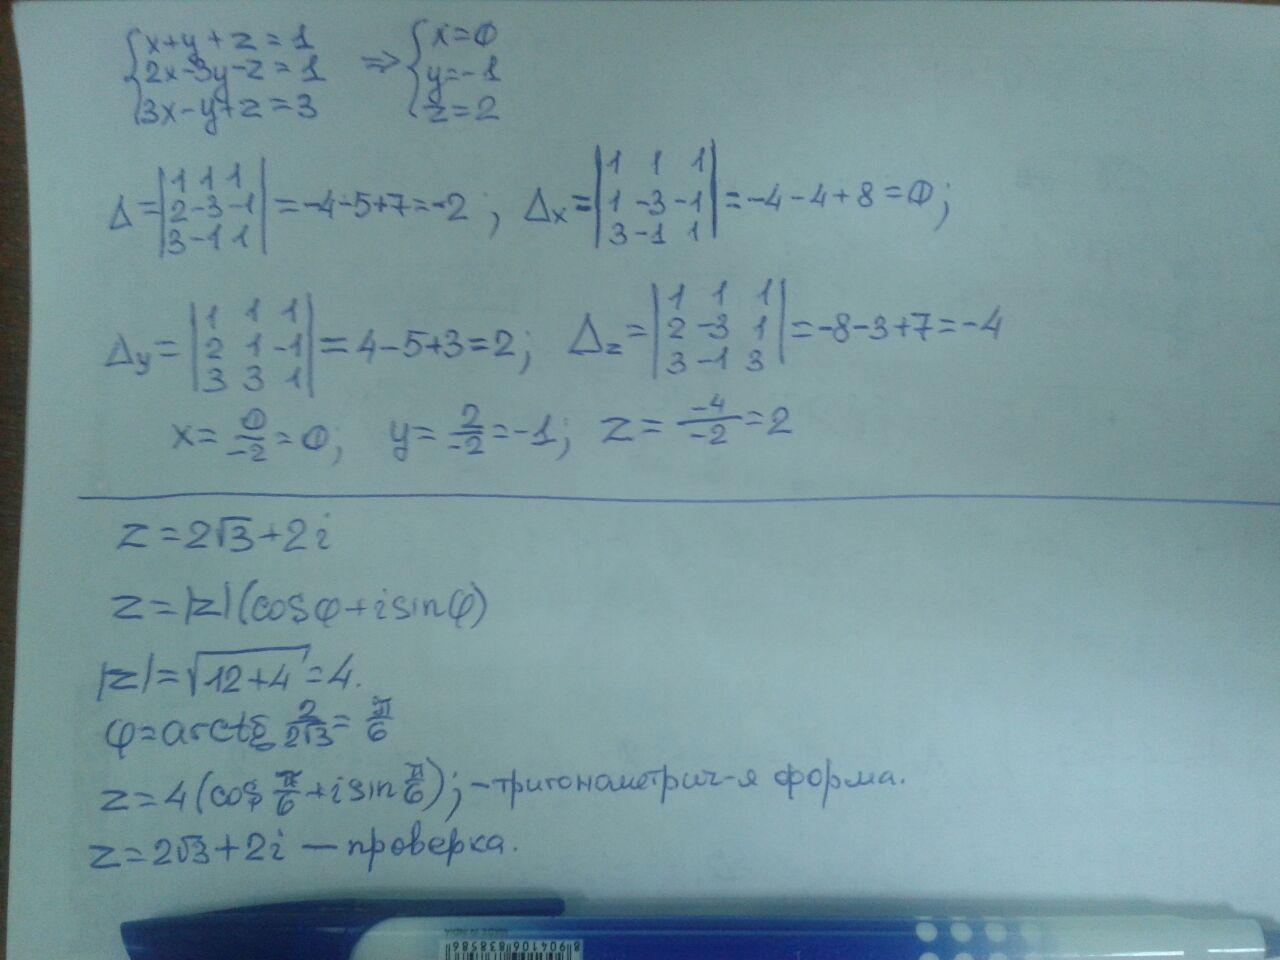 x+y+z=1
2x-3y-z=1 => x=0
3x-y+z=3 y=-1
z=2
Δ = |1 1 1; 2 -3 -1; 3 -1 1| = -4-5+7=-2 ; Δx = |1 1 1; 1 -3 -1; 3 -1 1| = -4-4+8=0;
Δy = |1 1 1; 2 1 -1; 3 3 1| = 4-5+3=2; Δz = |1 1 1; 2 -3 1; 3 -1 3| = -8-3+7=-4
x= 0/-2 =0; y= 2/-2 =-1; z= -4/-2 =2
z=2√3+2i
z=|z|(cosφ+isinφ)
|z|=√12+4=4.
φ=arctg 2/2√3 = π/6
z=4(cos π/6 +isin π/6); -тригонометрич-я форма.
z=2√3+2i — проверка.
MADE IN INDIA
8 904106 838586